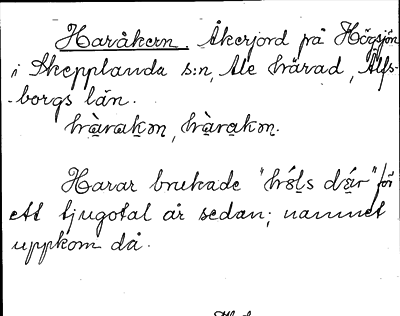 Haråkern. Åkerjord på Högsjön
i Skepplanda s:n, Ale härad, Älfs-
borgs län.
hàrakən, hàrakən.
Harar brukade "hǿls dǽr" för
ett tjugotal år sedan; namnet
uppkom då.